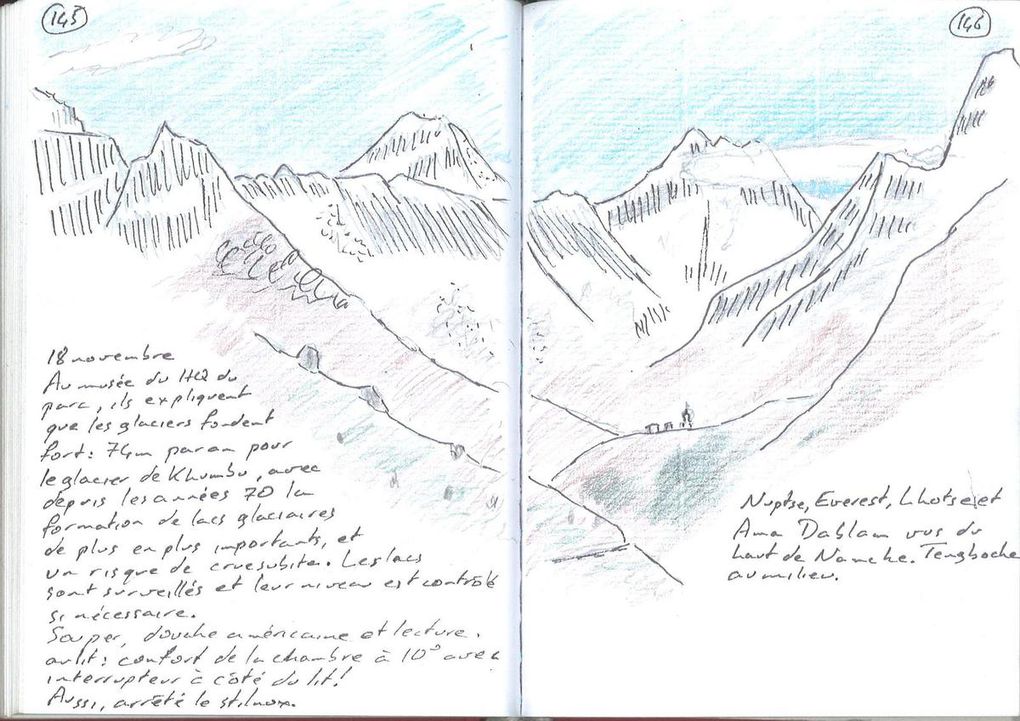 145
18 novembre
Au musée du HQ du
parc, ils expliquent
que les glaciers fondent
fort: 74m par an pour
le glacier de Khumbu, avec
depuis les années 70 la
formation de lacs glaciaires
de plus en plus importants, et
un risque de crue subite. Les lacs
sont surveillés et leur niveau est contrôlé
si nécessaire.
Souper, douche américaine et lecture.
au lit: confort de la chambre à 10° avec
interrupteur à côté du lit!
Aussi, arrêté le stilnox.
146
Nuptse, Everest, Lhotse et
Ama Dablam vus du
haut de Namche. Tengboche
au milieu.